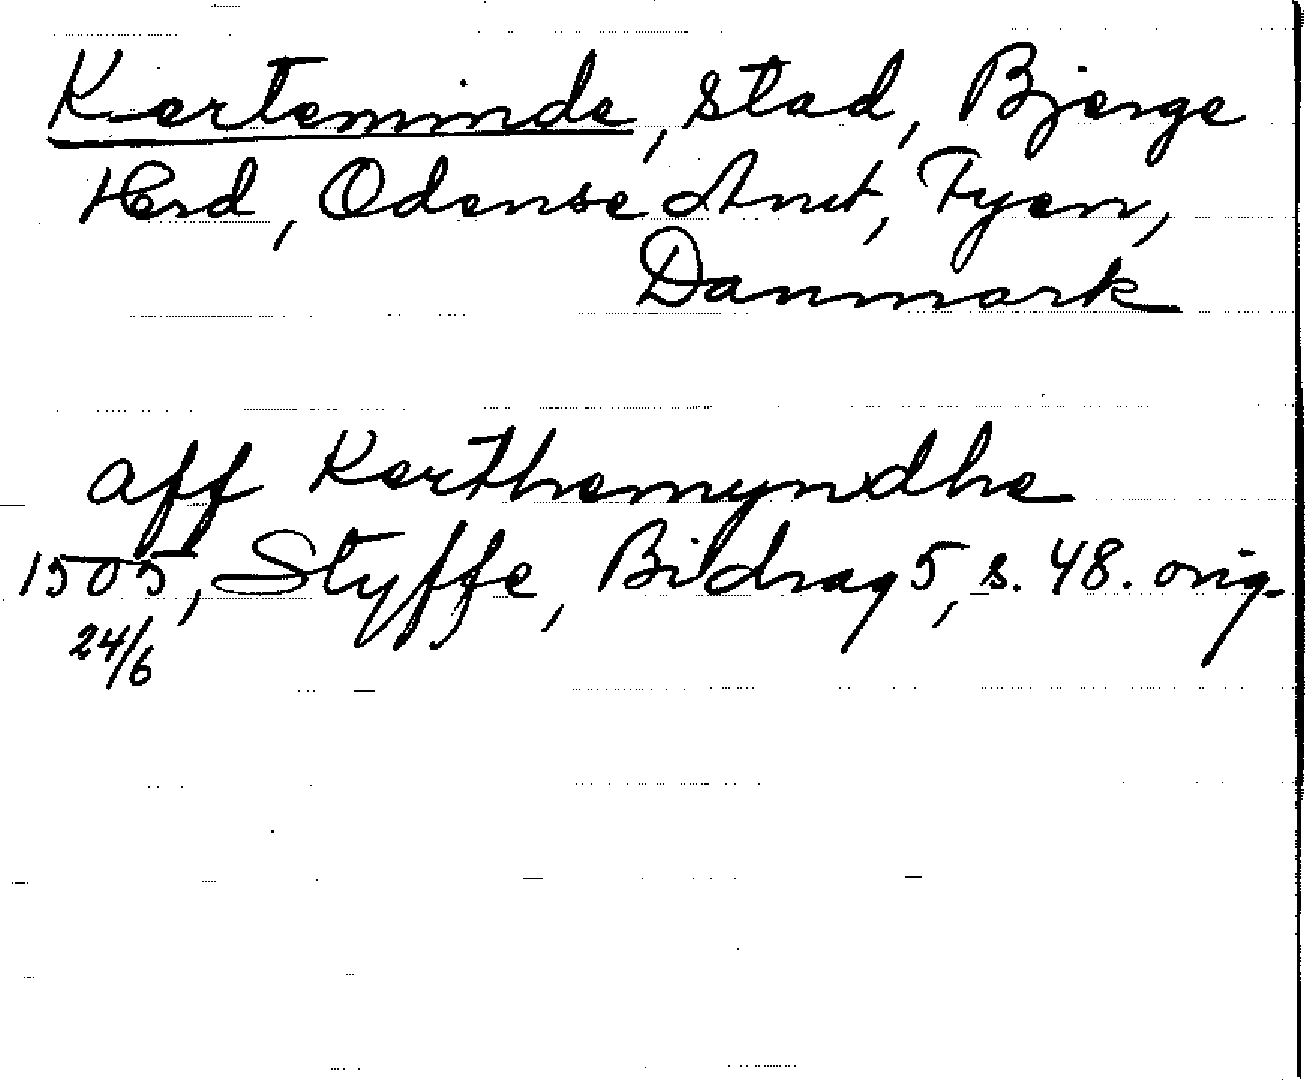 Kerteminde, stad, Bjerge
Hrd, Odense Amt, Fyen,
Danmark
aff Kerthemyndhe
1505, Styffe, Bidrag 5, s. 48. orig.
24/6